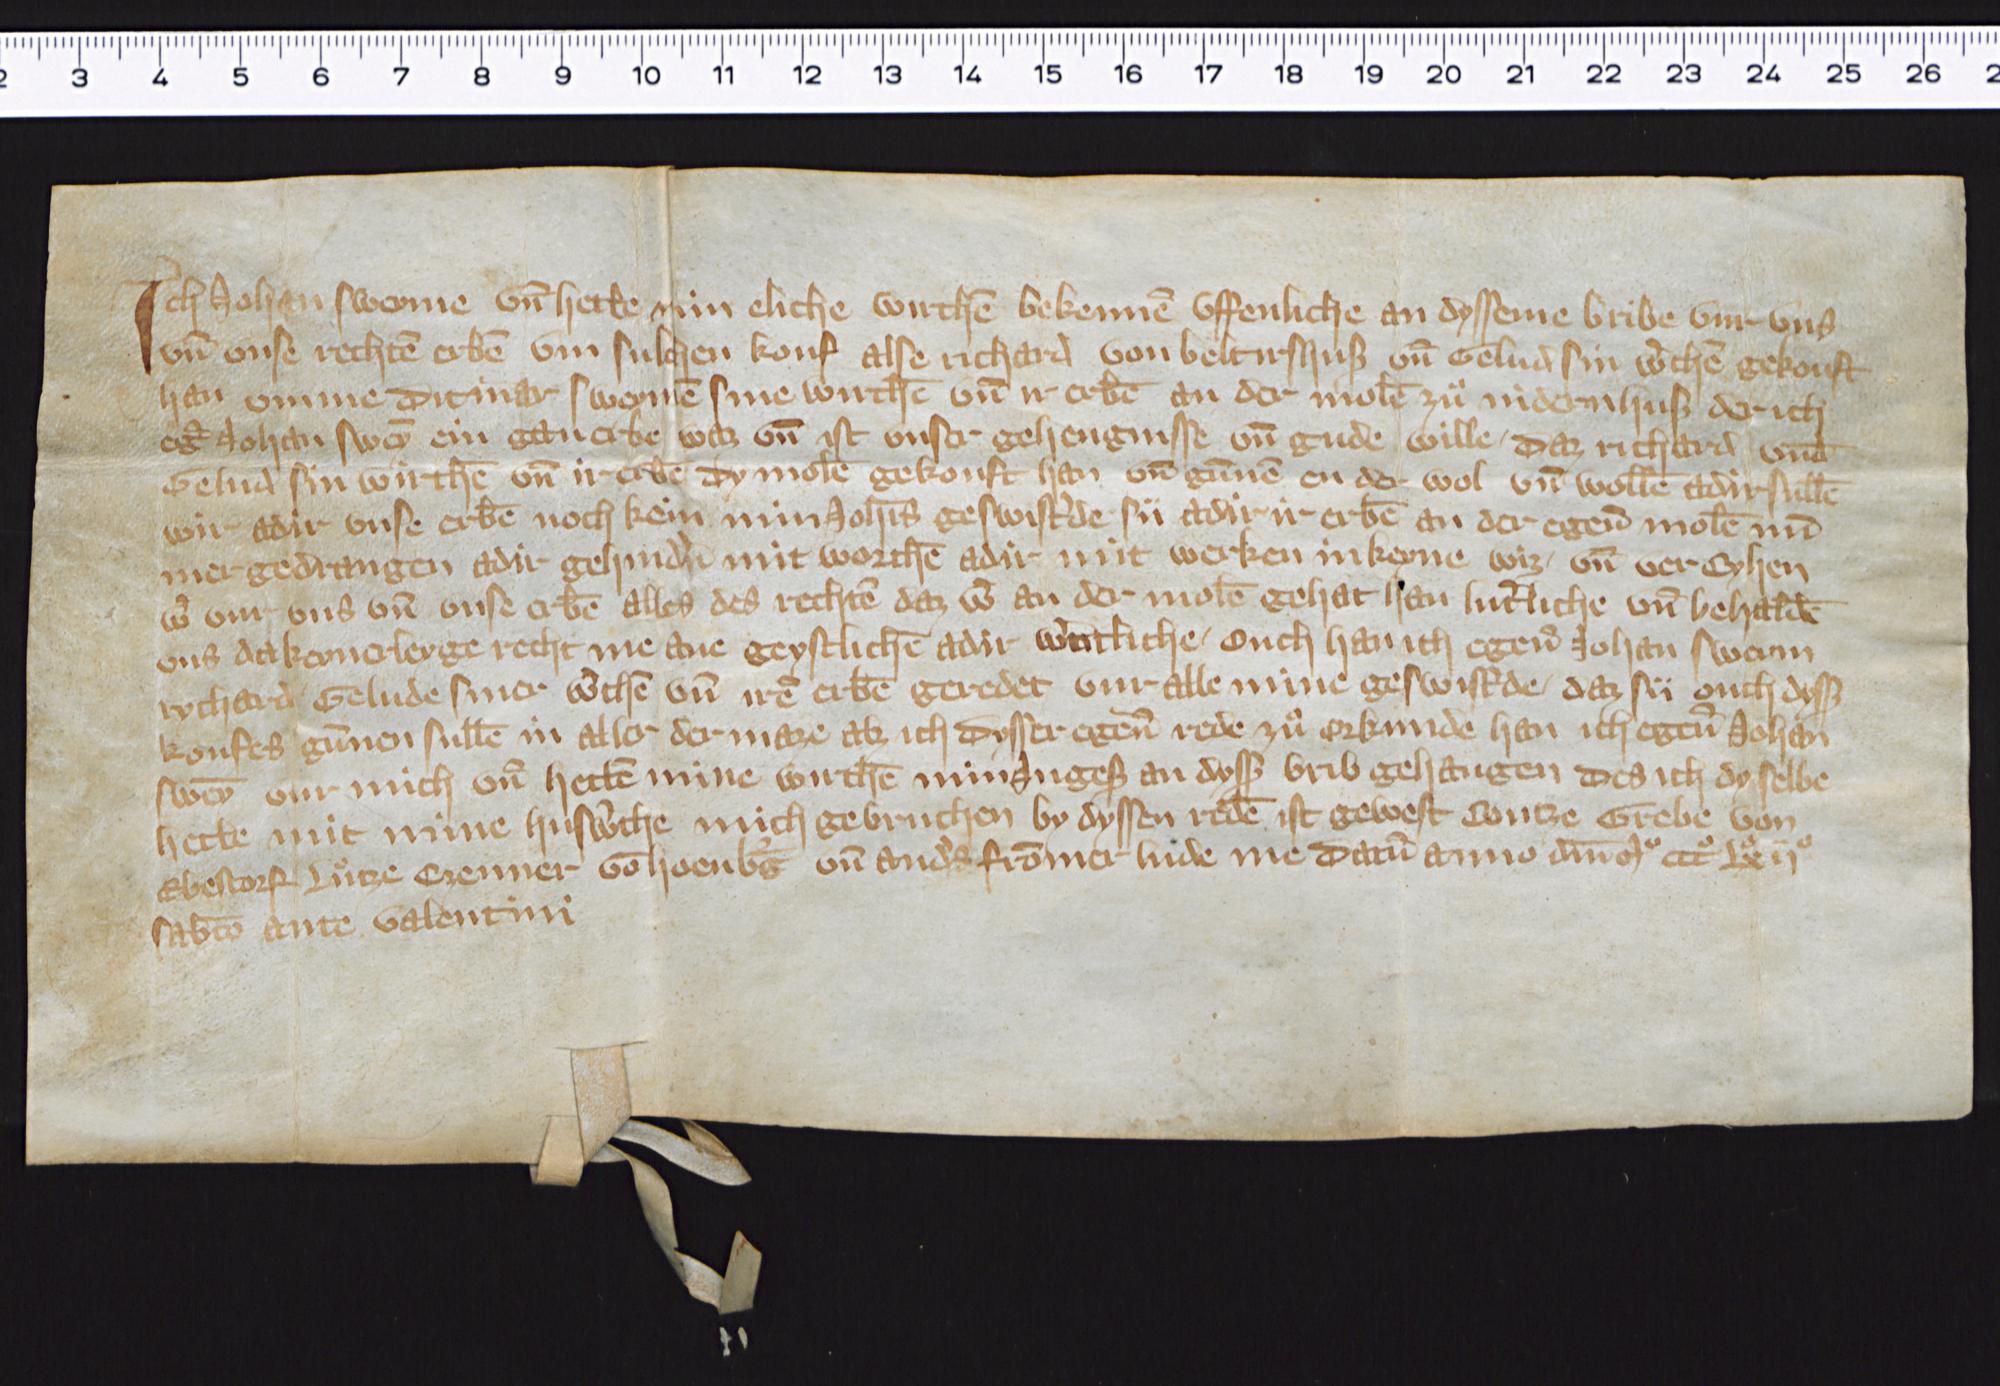 2 3 4 5 6 7 8 9 10 11 12 13 14 15 16 17 18 19 20 21 22 23 24 25 26 2
Ich Johan sweyme vn̄ hecke min eliche wirthē bekennē vffenliche an dysseme bribe vur vns
vn̄ vnse rechtē erbē vm sulchen kouf alse richard von beltirshuß vn̄ Gelud sin w̓thē gekouft
han vmme Ditmar sweymē sine wirthē vn̄ ir erbē an der molē zuͦ nidernhuß der ich
eḡ Johan swey̅ ein ganerbe waz vn̄ ist vnser gehengnisse vn̄ gude wille / Daz richard vnd
Gelud sin wirthē vn̄ ir erbē dy molē gekouft han vn̄ gūnē en der wol vn̄ wollē adir sullē
wir adir vnse erbē noch kein min Joh̄is geswist̓de sii adir ir erbē an der egen̄ molē nū
mer gedrangen adir gehind̓n mit worthē adir mit werken in keyne wiz / vn̄ vercyhen
w̓ vur vns vn̄ vnse erbē alles des rechtē daz w̓ an der molē gehat han lut̓liche vn̄ behaldē
vns da keynerleyge recht me ane geystlichē adir w̓ntliche / Ouch han ich egen̄ Johan sweym
rychard Gelude siner w̓thē vn̄ irē erbē geredet vur alle mine geswist̓de / daz sii ouch dyss
koufes gūnen sullē in aller der maze alz ich Dysser egen̄ rede zuͦ orkunde han ich egen̄ Johan
swey̅ vur mich vn̄ heckē mine wirthē min Ingeß an dyss brib gehangen Des ich dy selbe
hecke mit mime husw̓the mich gebruchen by dyssen redē ist gewest Contze Grebe von
Ebestorf Lutze Czenner vō hoenb̓g vn̄ and̓s fromer lude me Datū anno dn̄i Mͦ cccͦ lxiiͦ
sabb̄to ante valentini